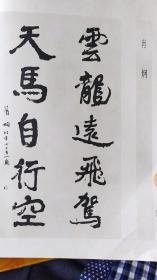 肖嫻
雲龍遠飛駕
天馬自行空